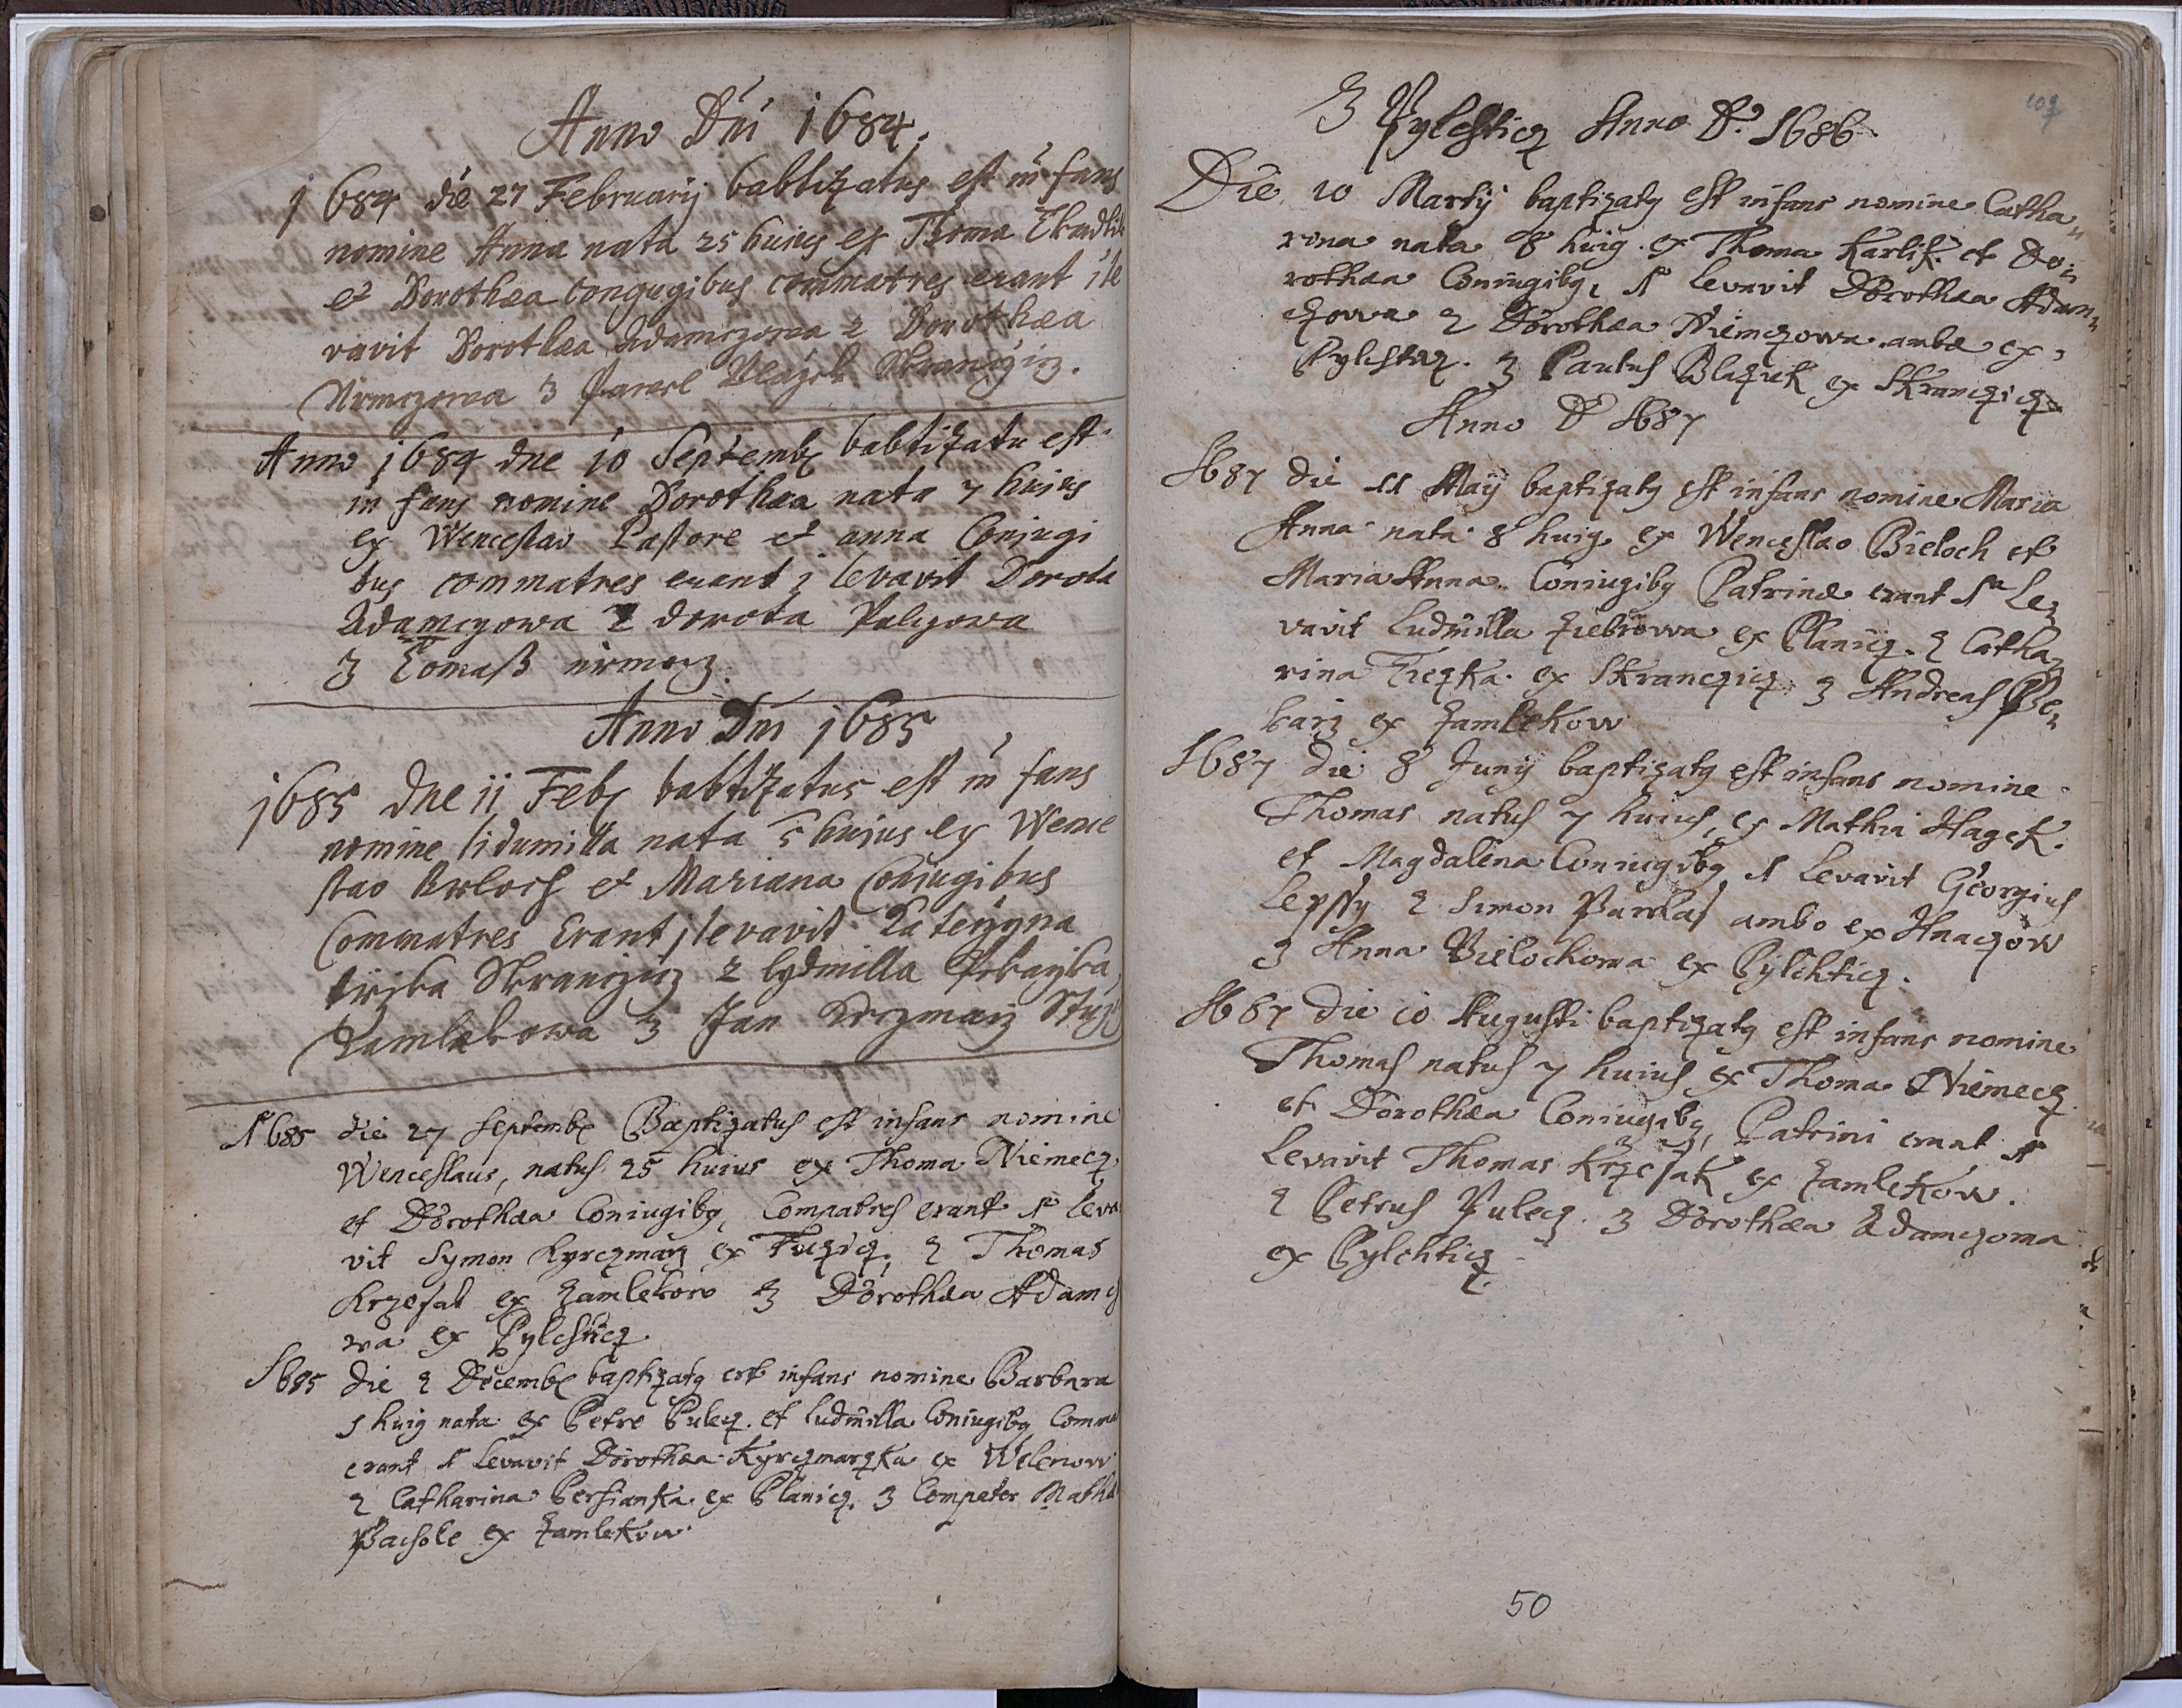 Anno Dni 1684.
1684 die 27 Februarij babtizatus est in fans
nomine Anna nata 25 huius ex Thoma
et Dorothæa Congugibus commatres erant i le
vavit Dorothæa Adamczowa 2 Dorothæa
Nimczowa 3 Pawel Blažek Skranczicz.
Anno 1684 dne 10 Septemb babtizatu est
in fans nomine Dorothæa nata 7 huius
ex Wenceslao Pastore et anna Conjugi
bus commatres erant j levavit Dorota
Adamczowa 2 dorota Pulczowa
3 Tomaß nimecz.
Anno Dni 1685
1685 dne 11 Feb babtizatus est in fans
nomine lidumilla nata 5 hujus ex Wence
slao et Mariana Conjugibus
Commatres Erant j levavit Kateržyna
Skranczicz 2 lydmilla Pekarzka
Zamlekowa 3 Jan Krczmarz
1685 die 27 Septemb Baptizatus est infans nomine
Wenceslaus, natus 25 huius ex Thoma Niemecz
et Dorothæa Coniugibq, Compatres erant 1 Leva
vit Symon Kyrczmarz ex 2 Thomas
Krzesak ex Zamlekow 3 Dorothæa Adamcz
wa ex Pylchticz
1685 die 2 Decemb baptizatq est infans nomine Barbara
1 huiq nata ex Petro Pulcz et Ludmilla Coniugibq Comma
erant 1 Levavit Dorothæa Kyrczmarzka ex Welenow
2 Catharina Persianka ex Planicz. 3 Compater Mathæ
Pachole ex Zamlekow
109
Z Pylchticz Anno D. 1686
Die 10 Martij baptizatq est infans nomine Catha
rina nata 8 huiq. ex Thoma Karlik et Do
rothæa Coniugibq, 1 Levavit Dorothæa Adam
czowa 2 Dorothæa Niemczowa ambæ ex
Pylchticz. 3 Paulus Blazek ex Skranczicz
Anno D 1687
1687 die 11 Maij baptizatq est infans nomine Maria
Anna nata 8 huiq ex Wenceslao Bieloch et
Maria Anna Coniugibq Patrinæ erant 1 Le
vavit Ludmilla ex Planicz. 2 Catha
rina ex Skranczicz 3 Andreas Pe
karz ex Zamlekow
1687 die 8 Junij baptizatq est infans nomine
Thomas natus 7 huius, ex Mathia Hagek
et Magdalena Coniugibq 1 Levavit Georgius
Lepssy 2 Simon ambo ex Hnaczow
3 Anna Bielochowa ex Pylchticz.
1687 die 10 Augusti baptizatq est infans nomine
Thomas natus 7 huius ex Thoma Niemecz
et Dorothæa Coniugibq, Patrini erant 1
Levavit Thomas Krzesak ex Zamlekow.
2 Petrus Pulecz. 3 Dorothæa Adamczowa
ex Pylchticz.
50